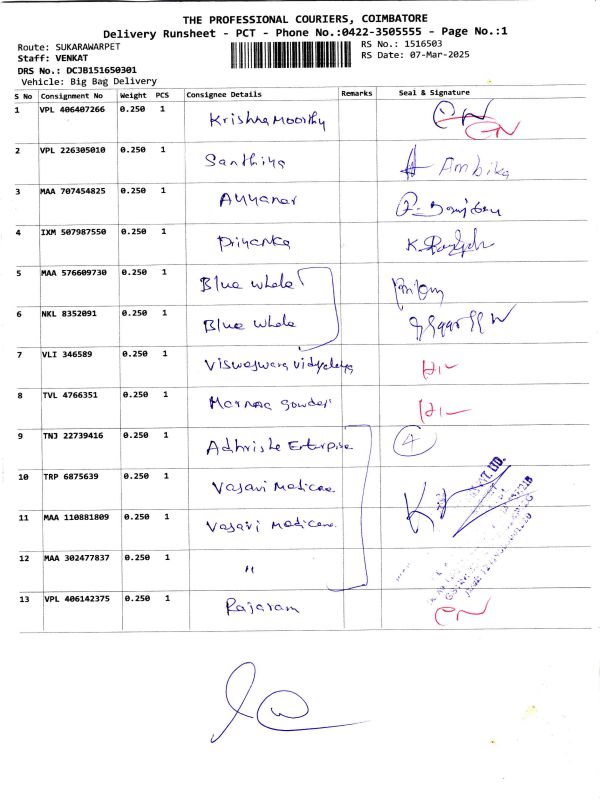 THE PROFESSIONAL COURIERS, COIMBATORE
Delivery Runsheet - PCT - Phone No.:0422-3505555 - Page No.:1
Route: SUKARAWARPET
Staff: VENKAT
DRS No.: DCJB151650301
Vehicle: Big Bag Delivery
RS No.: 1516503
RS Date: 07-Mar-2025
S No Consignment No Weight PCS Consignee Details Remarks Seal & Signature
1 VPL 406407266 0.250 1 Krishna Moorthy
2 VPL 226305010 0.250 1 Santhiya Ambika
3 MAA 707454825 0.250 1 Ayyanar
4 IXM 507987550 0.250 1 Priyanka
5 MAA 576609730 0.250 1 Blue whale
6 NKL 8352091 0.250 1 Blue whale
7 VLI 346589 0.250 1
8 TVL 4766351 0.250 1
9 TNJ 22739416 0.250 1 4
10 TRP 6875639 0.250 1 Vasavi
11 MAA 110881809 0.250 1 Vasavi
12 MAA 302477837 0.250 1 "
13 VPL 406142375 0.250 1 Rajaram